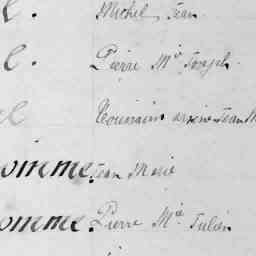 l. Michel Jean
l. Pierre Mie Joseph.
el Toussaint arsène Jean M
omme. Jean Marie
omme. Pierre Mie Julien